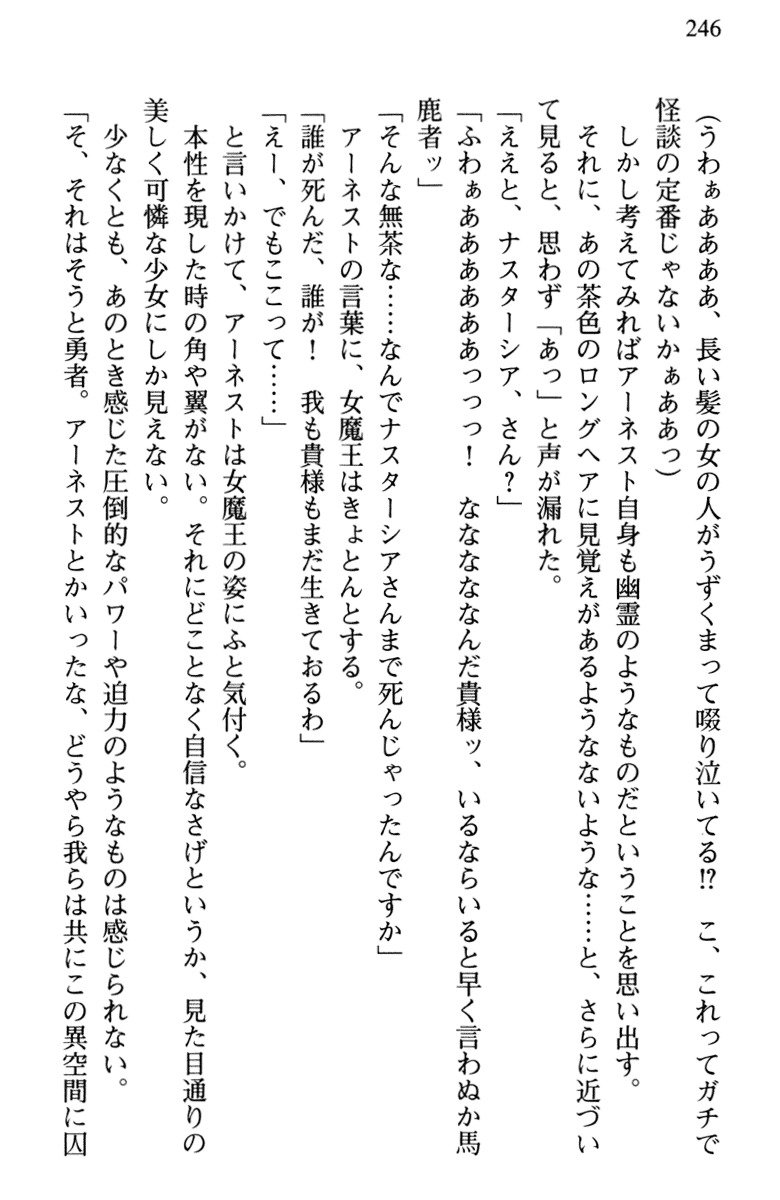 246
(うわぁああああ、長い髪の女の人がうずくまって啜り泣いてる!?　こ、これってガチで
怪談の定番じゃないかぁああっ)
　しかし考えてみればアーネスト自身も幽霊のようなものだということを思い出す。
　それに、あの茶色のロングヘアに見覚えがあるようなないような……と、さらに近づい
て見ると、思わず「あっ」と声が漏れた。
「ええと、ナスターシア、さん?」
「ふわぁああああああっっっ!　なななななんだ貴様ッ、いるならいると早く言わぬか馬
鹿者ッ」
「そんな無茶な……なんでナスターシアさんまで死んじゃったんですか」
　アーネストの言葉に、女魔王はきょとんとする。
「誰が死んだ、誰が!　我も貴様もまだ生きておるわ」
「えー、でもここって……」
　と言いかけて、アーネストは女魔王の姿にふと気付く。
　本性を現した時の角や翼がない。それにどことなく自信なさげというか、見た目通りの
美しく可憐な少女にしか見えない。
　少なくとも、あのとき感じた圧倒的なパワーや迫力のようなものは感じられない。
「そ、それはそうと勇者。アーネストとかいったな、どうやら我らは共にこの異空間に囚